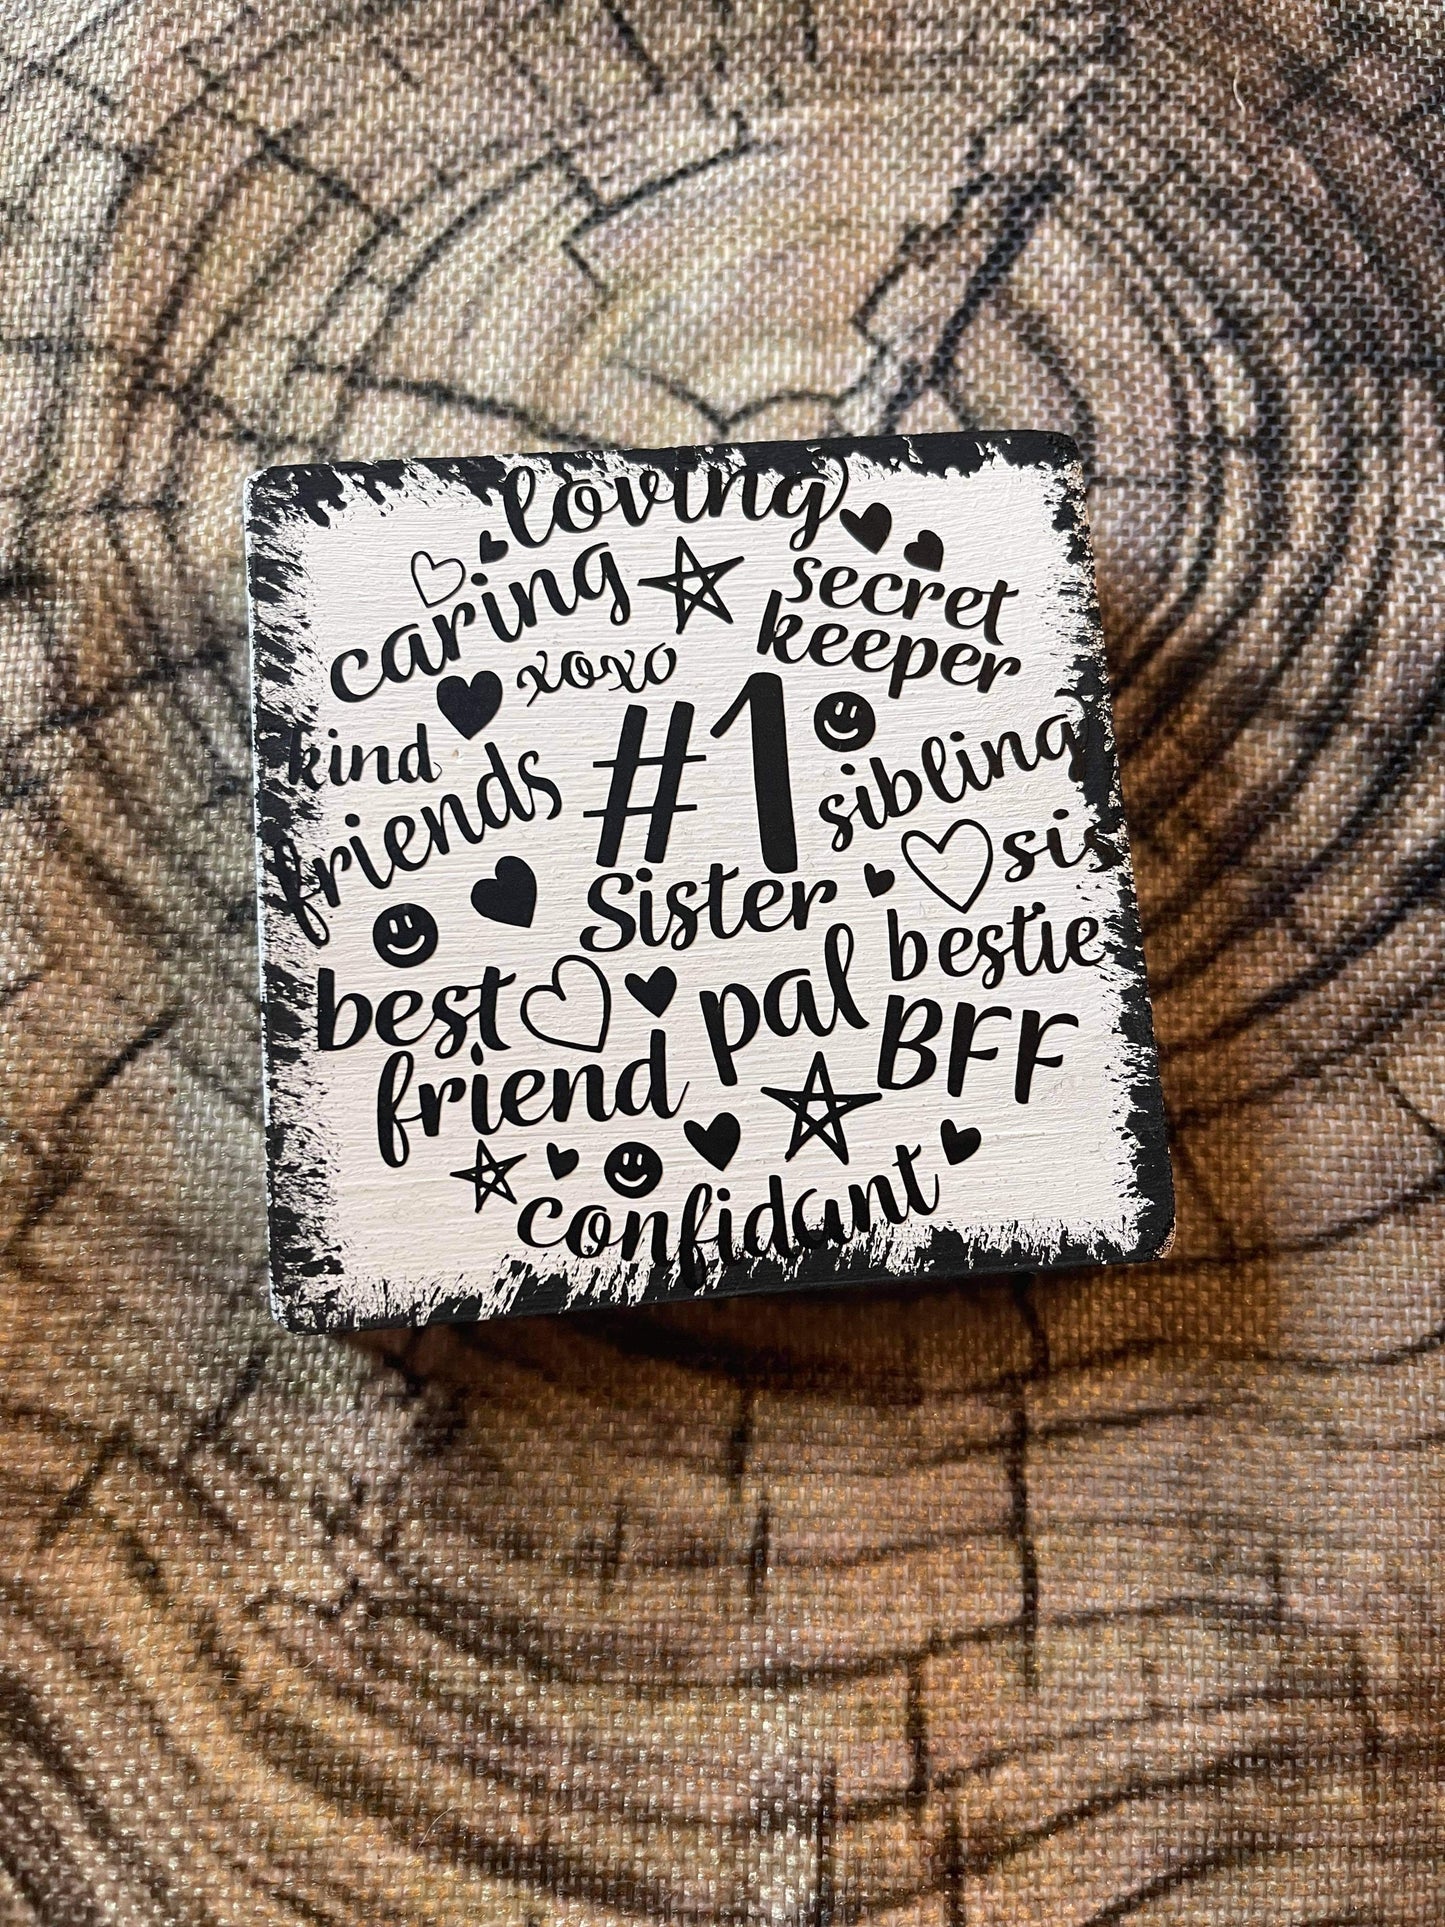 loving
caring
secret
keeper
xoxo
kind
#1
friends
sibling
Sister
sis
bestie
best
pal
BFF
friend
confidant